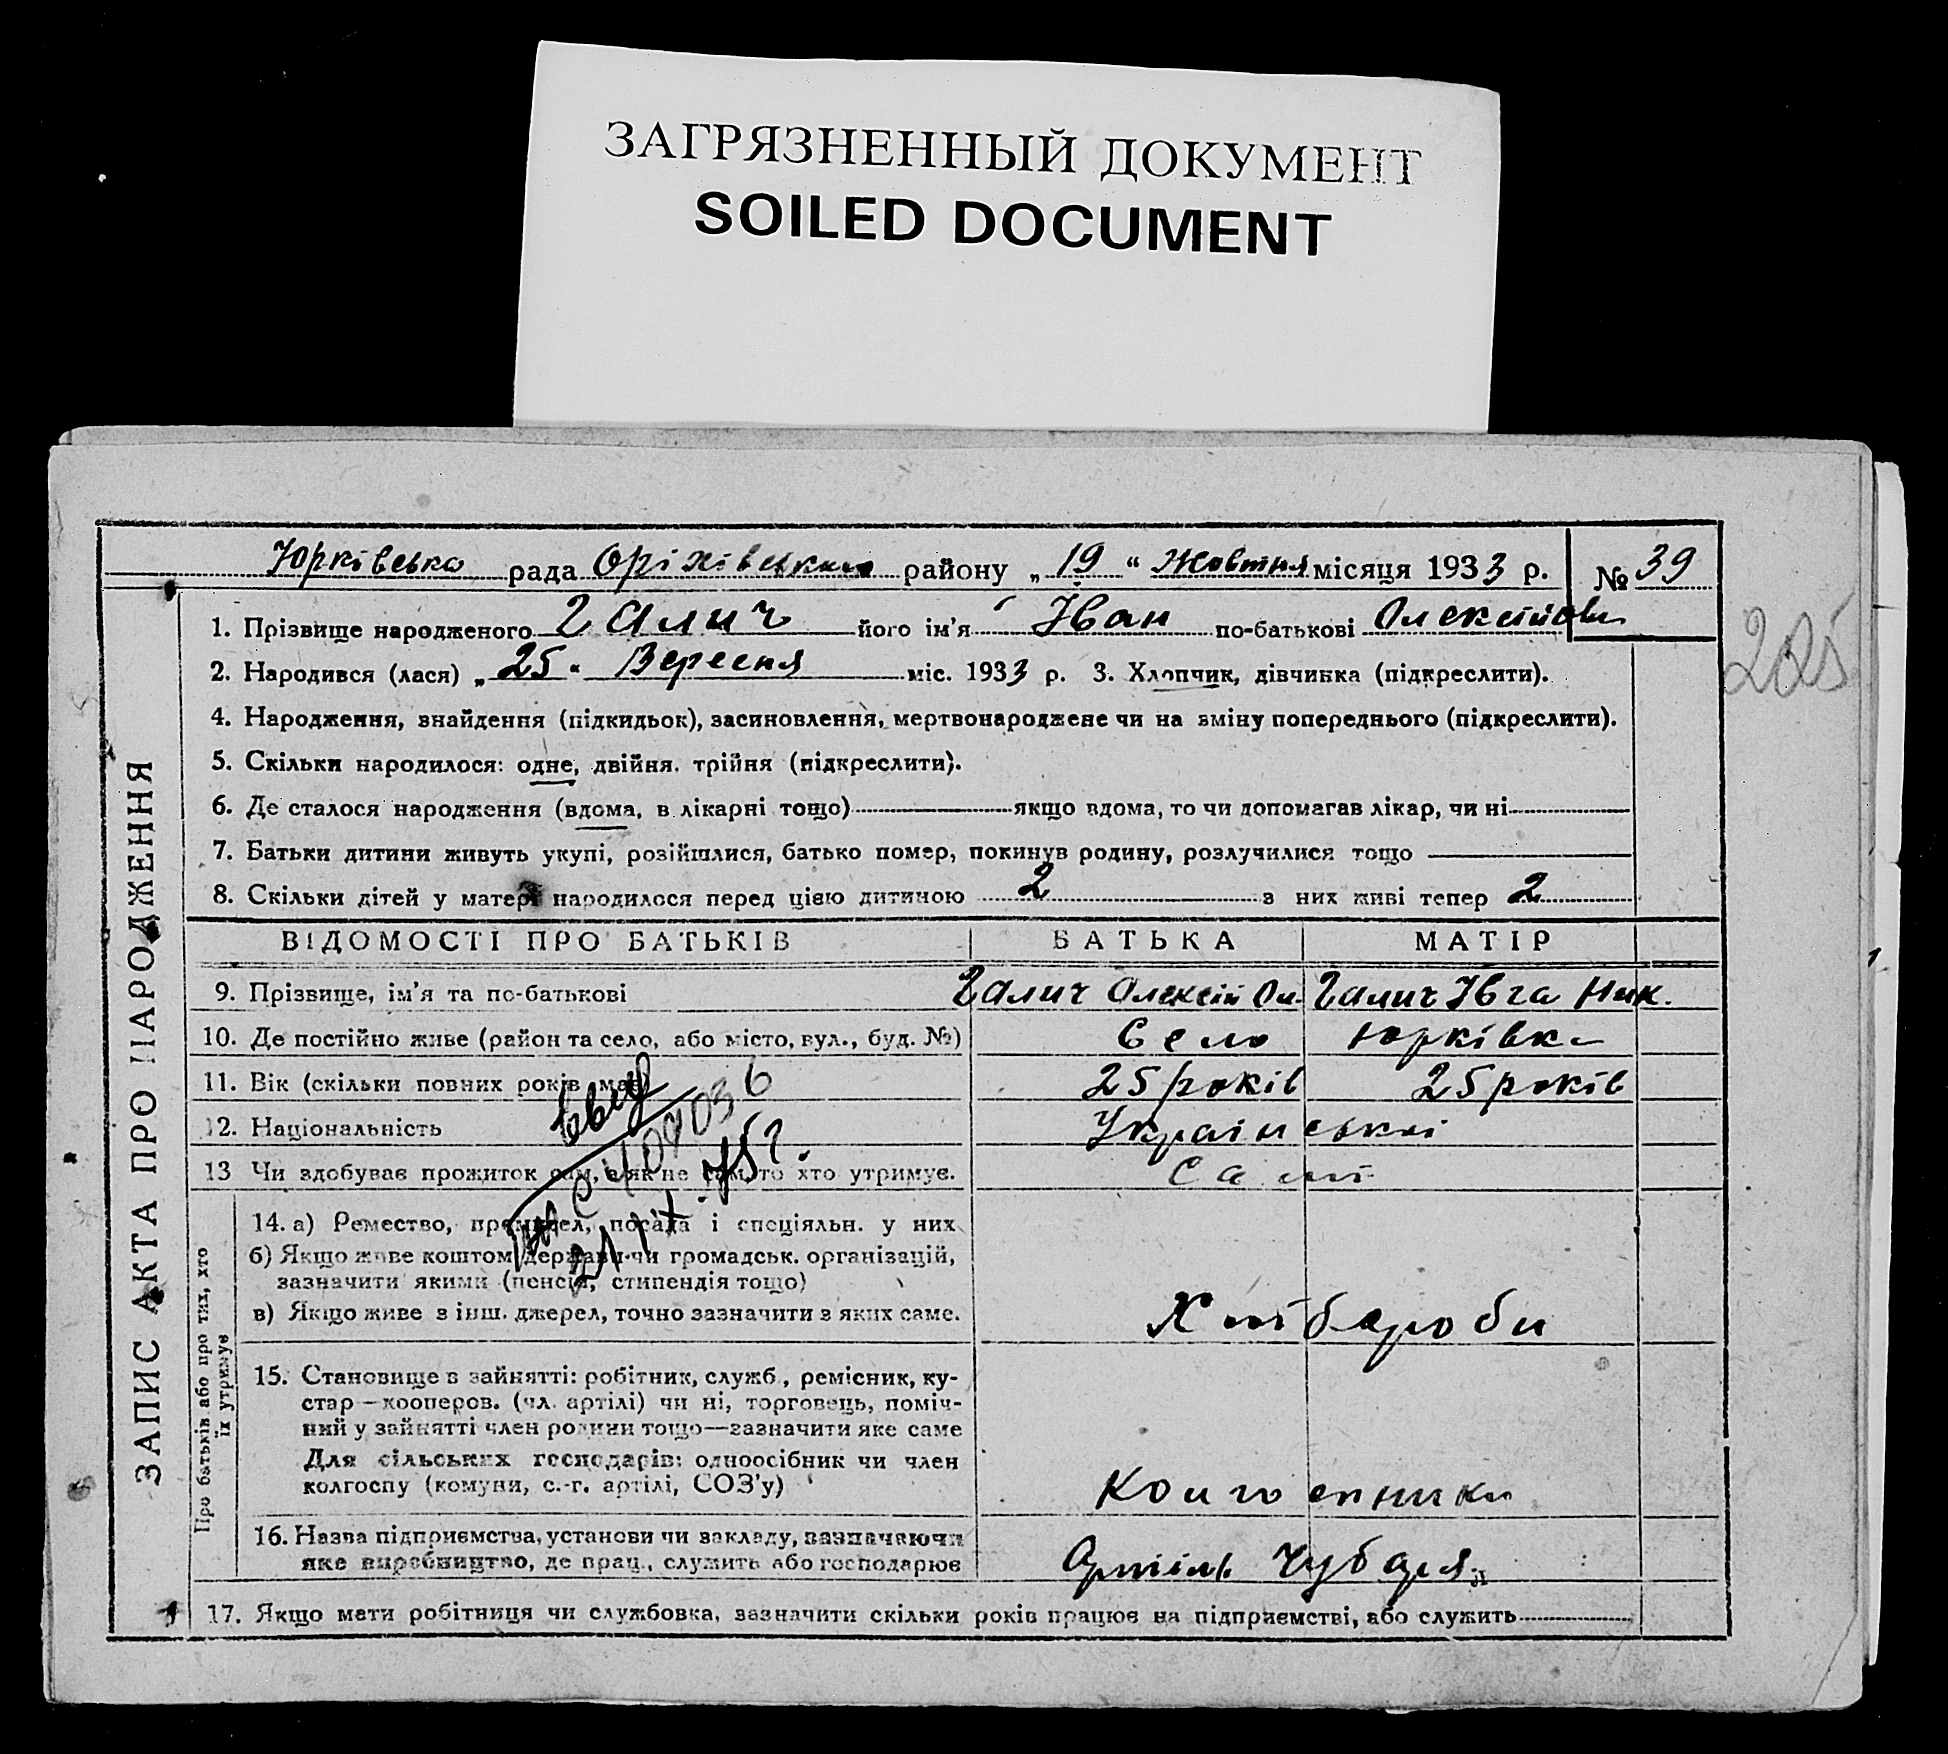 ЗАГРЯЗНЕННЫЙ ДОКУМЕНТ
SOILED DOCUMENT
Юрківська рада Оріхівського району „19“ Жовтня місяця 1933 р. № 39
225
1. Прізвище народженого Галич його ім’я Іван по-батькові Олексійови
2. Народився (лася) „25“ Вересня міс. 1933 р. 3. Хлопчик, дівчинка (підкреслити).
4. Народження, знайдення (підкидьок), засиновлення, мертвонароджене чи на зміну попереднього (підкреслити).
5. Скільки народилося: одне, двійня, трійня (підкреслити).
6. Де сталося народження (вдома, в лікарні тощо) якщо вдома, то чи допомагав лікар, чи ні
7. Батьки дитини живуть укупі, розійшлися, батько помер, покинув родину, розлучилися тощо
8. Скільки дітей у матері народилося перед цією дитиною 2 з них живі тепер 2
ЗАПИС АКТА ПРО НАРОДЖЕННЯ
ВІДОМОСТІ ПРО БАТЬКІВ БАТЬКА МАТІР
9. Прізвище, ім’я та по-батькові Галич Олексій Ол. Галич Ївга Ник.
10. Де постійно живе (район та село, або місто, вул., буд. №) Село Юрківка
11. Вік (скільки повних років має) 25 років 25 років
12. Національність Українські
13 Чи здобуває прожиток сам, а як не сам, то хто утримує. Самі
Про батьків або про тих, хто
їх утримує
14. а) Ремество, промисел, посада і спеціяльн. у них
б) Якщо живе коштом держави чи громадськ. організацій,
зазначити якими (пенсія, стипендія тощо)
в) Якщо живе з інш. джерел, точно зазначити з яких саме. Хлібороби
15. Становище в зайнятті: робітник, служб., ремісник, ку-
стар—кооперов. (чл. артілі) чи ні, торговець, поміч-
ний у зайнятті член родини тощо—зазначити яке саме
Для сільських господарів: одноосібник чи член
колгоспу (комуни, с.-г. артілі, СОЗ’у) Колгоспники
16. Назва підприємства, установи чи закладу, зазначаючи
яке виробництво, де прац., служить або господарює Артіль Чубаря
17. Якщо мати робітниця чи службовка, зазначити скільки років працює на підприємстві, або служить